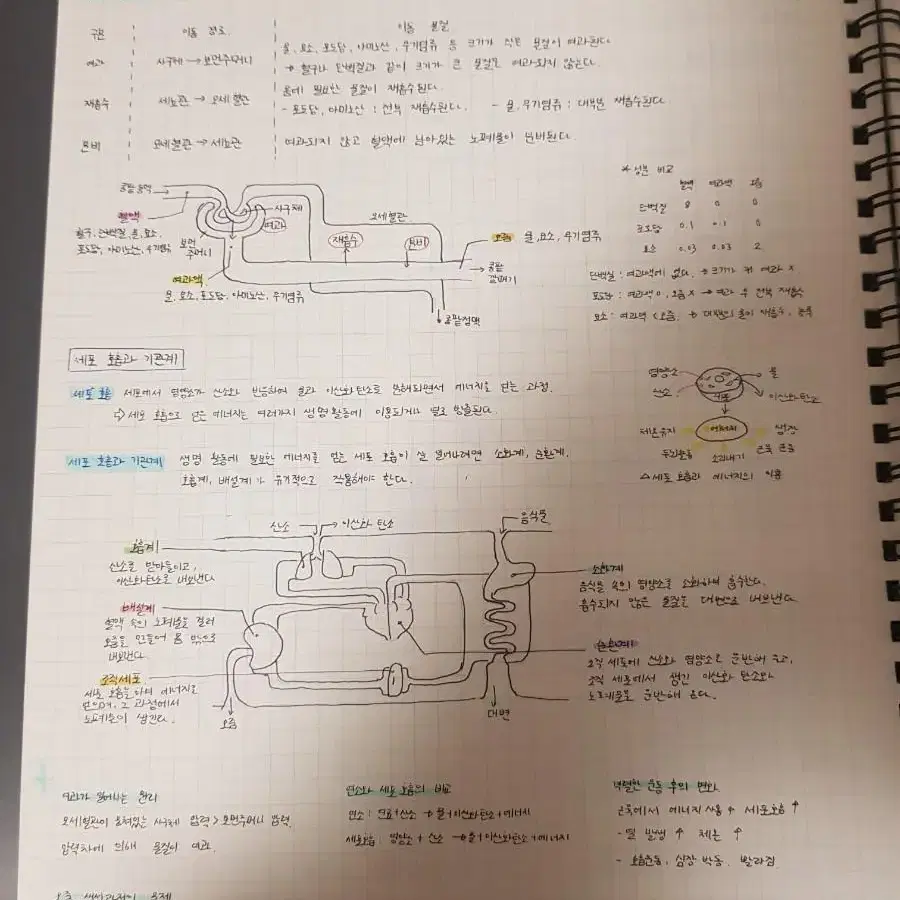 구분 이동 경로 이동 물질
물, 요소, 포도당, 아미노산, 무기염류 등 크기가 작은 물질이 여과된다.
여과 사구체 → 보먼주머니
→ 혈구나 단백질과 같이 크기가 큰 물질은 여과되지 않는다.
몸에 필요한 물질이 재흡수된다.
재흡수 세뇨관 → 모세혈관
- 포도당, 아미노산 : 전부 재흡수된다. - 물, 무기염류 : 대부분 재흡수된다.
분비 모세혈관 → 세뇨관 여과되지 않고 혈액에 남아있는 노폐물이 분비된다.
* 성분 비교
혈액 여과액 오줌
단백질 8 0 0
포도당 0.1 0.1 0
요소 0.03 0.03 2
단백질 : 여과액에 없다. → 크기가 커 여과 X
포도당 : 여과액 O, 오줌 X → 여과 후 전부 재흡수
요소 : 여과액 < 오줌. → 대부분의 물이 재흡수, 농축
콩팥동맥
사구체
혈액
여과
모세혈관
혈구, 단백질, 물, 요소,
포도당, 아미노산, 무기염류
보먼
주머니
재흡수
분비
오줌 물, 요소, 무기염류
콩팥
깔때기
여과액
물, 요소, 포도당, 아미노산, 무기염류
콩팥정맥
세포 호흡과 기관계
세포 호흡 세포에서 영양소가 산소와 반응하여 물과 이산화탄소로 분해되면서 에너지를 얻는 과정.
⇨ 세포 호흡으로 얻은 에너지는 여러가지 생명 활동에 이용되거나 열로 방출된다.
영양소 물
산소 이산화탄소
세포
에너지
체온유지 생장
두뇌활동 소리내기 근육 운동
△ 세포 호흡과 에너지의 이용
세포 호흡과 기관계 생명 활동에 필요한 에너지를 얻는 세포 호흡이 잘 일어나려면 소화계, 순환계,
호흡계, 배설계가 유기적으로 작용해야 한다.
산소 이산화 탄소 음식물
호흡계
산소를 받아들이고,
이산화탄소를 내보낸다
배설계
혈액 속의 노폐물을 걸러
오줌을 만들어 몸 밖으로
내보낸다.
조직세포
세포 호흡을 하여 에너지를
얻으며, 그 과정에서
노폐물이 생긴다.
소화계
음식물 속의 영양소를 소화하여 흡수한다.
흡수되지 않은 물질을 대변으로 내보낸다.
순환계
조직 세포에 산소와 영양소를 운반해 주고,
조직 세포에서 생긴 이산화 탄소와
노폐물을 운반해 온다.
오줌 대변
여과가 일어나는 원리
모세혈관이 뭉쳐있는 사구체 압력 > 보먼주머니 압력.
압력차에 의해 물질이 여과.
연소와 세포 호흡의 비교
연소 : 연료+산소 → 물+이산화탄소+에너지
세포호흡 : 영양소 + 산소 → 물+이산화탄소+에너지
격렬한 운동 후의 변화
근육에서 에너지 사용 ↑ 세포호흡 ↑
- 열 발생 ↑ 체온 ↑
- 호흡운동, 심장 박동. 빨라짐